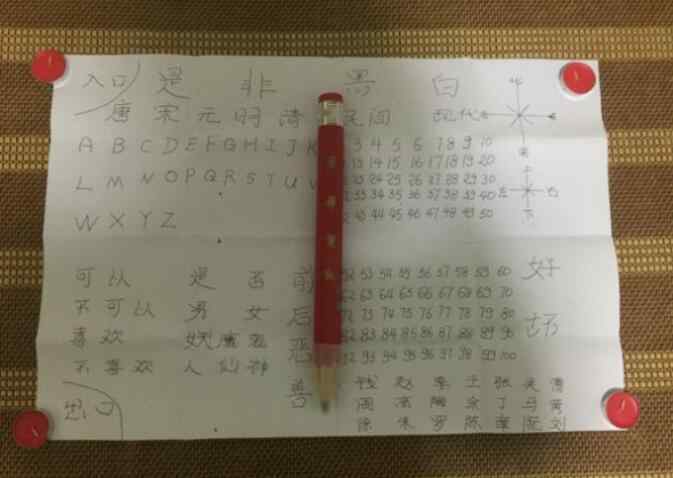 入口 是 非 黑 白
唐 宋 元 明 清 民间 现代
北
A B C D E F G H I J K 3 4 5 6 7 8 9 10
L M N O P Q R S T U V 13 14 15 16 17 18 19 20
23 24 25 26 27 28 29 30
33 34 35 36 37 38 39 40
W X Y Z 43 44 45 46 47 48 49 50
南
上
左 右
下
可以 是 否 前 52 53 54 55 56 57 58 59 60
不可以 男 女 后 62 63 64 65 66 67 68 69 70
72 73 74 75 76 77 78 79 80
喜欢 妖魔鬼 恶 82 83 84 85 86 87 88 89 90
不喜欢 人 仙 神 92 93 94 95 96 97 98 99 100
好
坏
善 钱 赵 李 王 张 吴
周 陶 余 丁 马 黄
徐 朱 罗 陈 章 阮 刘
出口